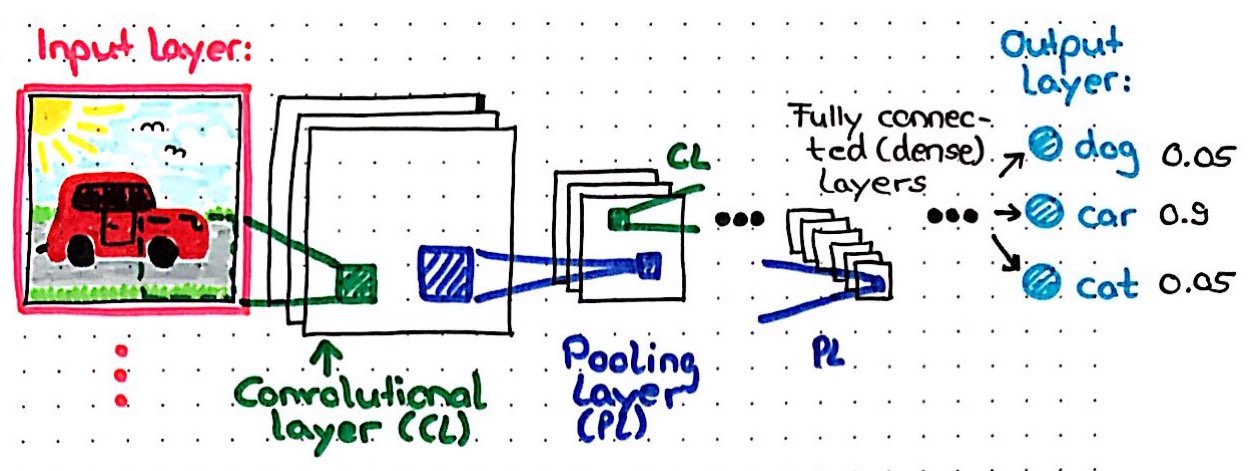 Input layer:
Convolutional
layer (CL)
Pooling
Layer
(PL)
CL
PL
Fully connec-
ted (dense)
Layers
Output
Layer:
dog 0.05
car 0.9
cat 0.05